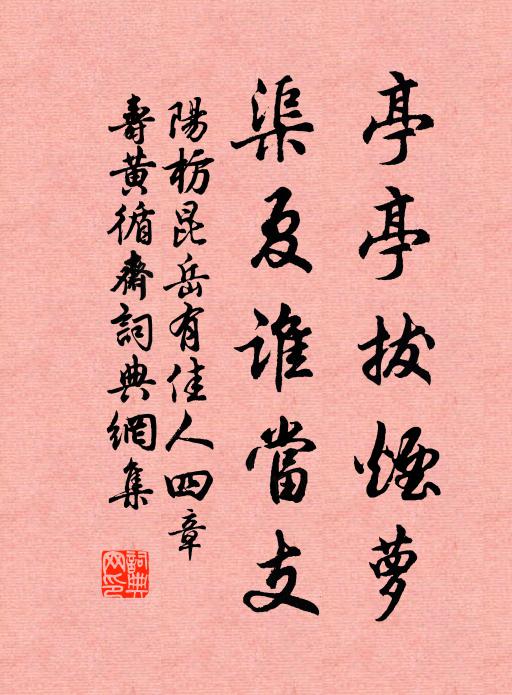 亭亭拔煙夢
渠夏誰當支
陽枥昆岳有佳人四章
壽黃循齋詞典網集
詞典网印